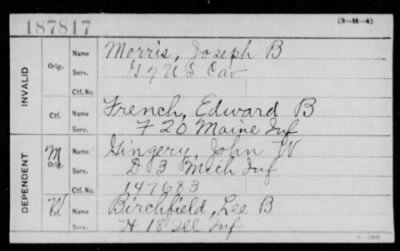 187817
(3—H—4)
INVALID
Orig.
Name Morris, Joseph B
Serv. G 7 U S Cav
Ctf. No.
Ctf.
Name French, Edward B
Serv. F 20 Maine Inf
DEPENDENT
M
Orig.
Name Gingery, John W
Serv. D 3 Mich Inf
Ctf. No. 147683
W
Name Birchfield, Lee B
Serv. H 18 Ill Inf